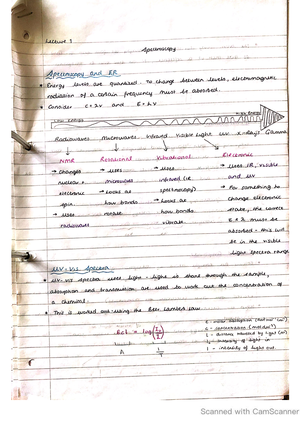 Lecture 3
Spectroscopy
Spectroscopy and ER
• Energy levels are quantized. To change between levels, electromagnetic
radiation of a certain frequency must be absorbed.
• Consider C = λν and E = hν
Low Energy
High Energy
Radiowaves Microwaves Infrared Visible Light UV X-Rays Gamma
NMR
→ changes
nuclear +
electronic
spin.
→ uses
radiowaves
Rotational
→ uses
microwaves
→ looks at
how bonds
rotate
Vibrational
→ uses
infrared (IR
spectroscopy)
→ looks at
how bonds
vibrate.
Electronic
→ uses IR, visible
and UV
→ For something to
change electronic
state, the
must be
absorbed - this will
be in the visible
light spectra range
UV-Vis Spectra
• UV-Vis spectra uses light - light is shone through the sample,
absorption and transmission are used to work out the concentration of
a chemical.
• This is worked out using the Beer Lambert Law
εcl = log(I₀/I)
A
c = concentration (mol dm⁻³)
I₀ = intensity of light in
I = intensity of light out.
Scanned with CamScanner